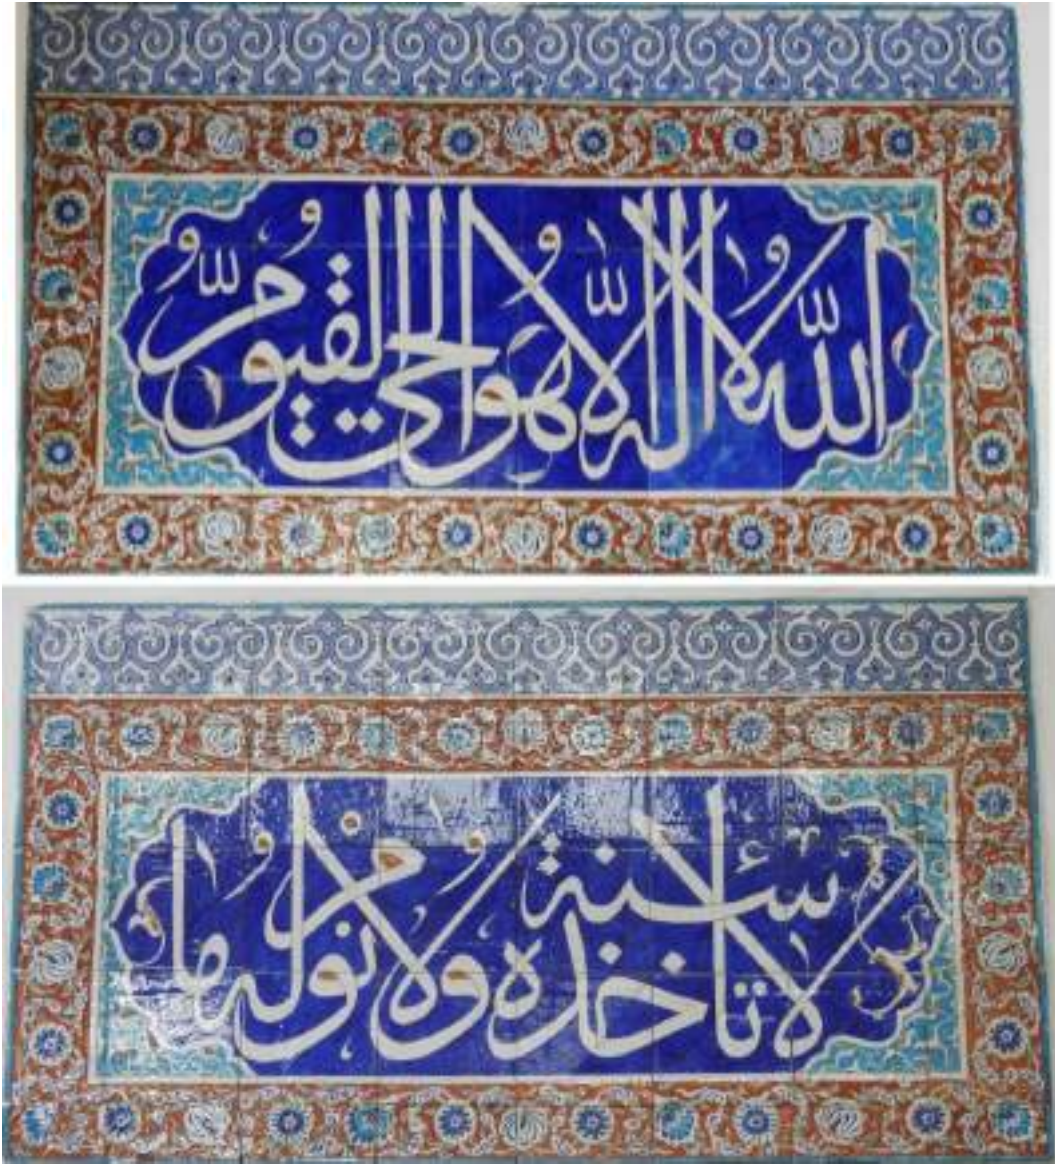 الله لا اله الا هو الحي القيوم
لا تاخذه سنة ولا نوم له ما